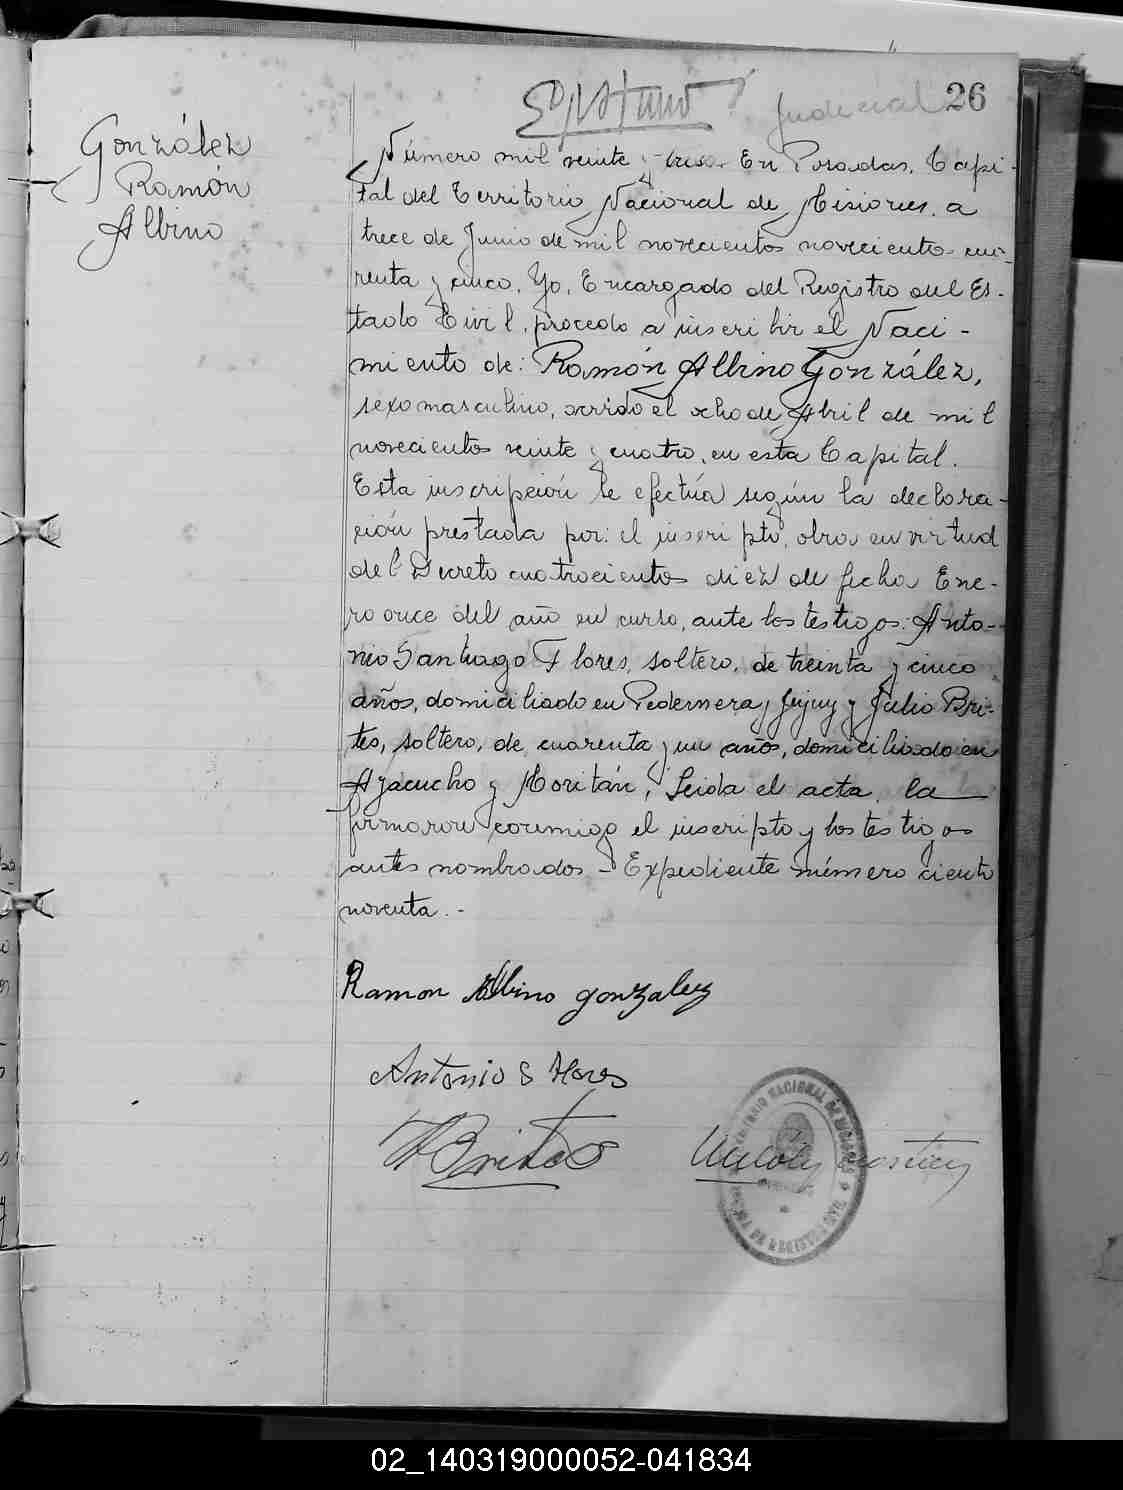 26
Judicial
González
Ramón
Albino
Número mil veinte y tres. En Posadas, Capi-
tal del Territorio Nacional de Misiones, a
trece de Junio de mil novecientos novecientos cua-
renta y cinco, Yo, Encargado del Registro del Es-
tado Civil, procedo a inscribir el Naci-
miento de: Ramón Albino González,
sexo masculino, ocurrido el ocho de Abril de mil
novecientos veinte y cuatro, en esta Capital.
Esta inscripción se efectúa según la declara-
ción prestada por: el inscripto, obra en virtud
del Decreto cuatrocientos diez de fecha Ene-
ro once del año en curso, ante los testigos: Anto-
nio Santiago Flores, soltero, de treinta y cinco
años, domiciliado en Pedernera y Jujuy y Julio Bri-
tes, soltero, de cuarenta y un años, domiciliado en
Ayacucho y Moritán, Leida el acta, la
firmaron conmigo el inscripto y los testigos
antes nombrados - Expediente número ciento
noventa. -
Ramon Albino gonzalez
Antonio S Flores
Brites
02_140319000052-041834